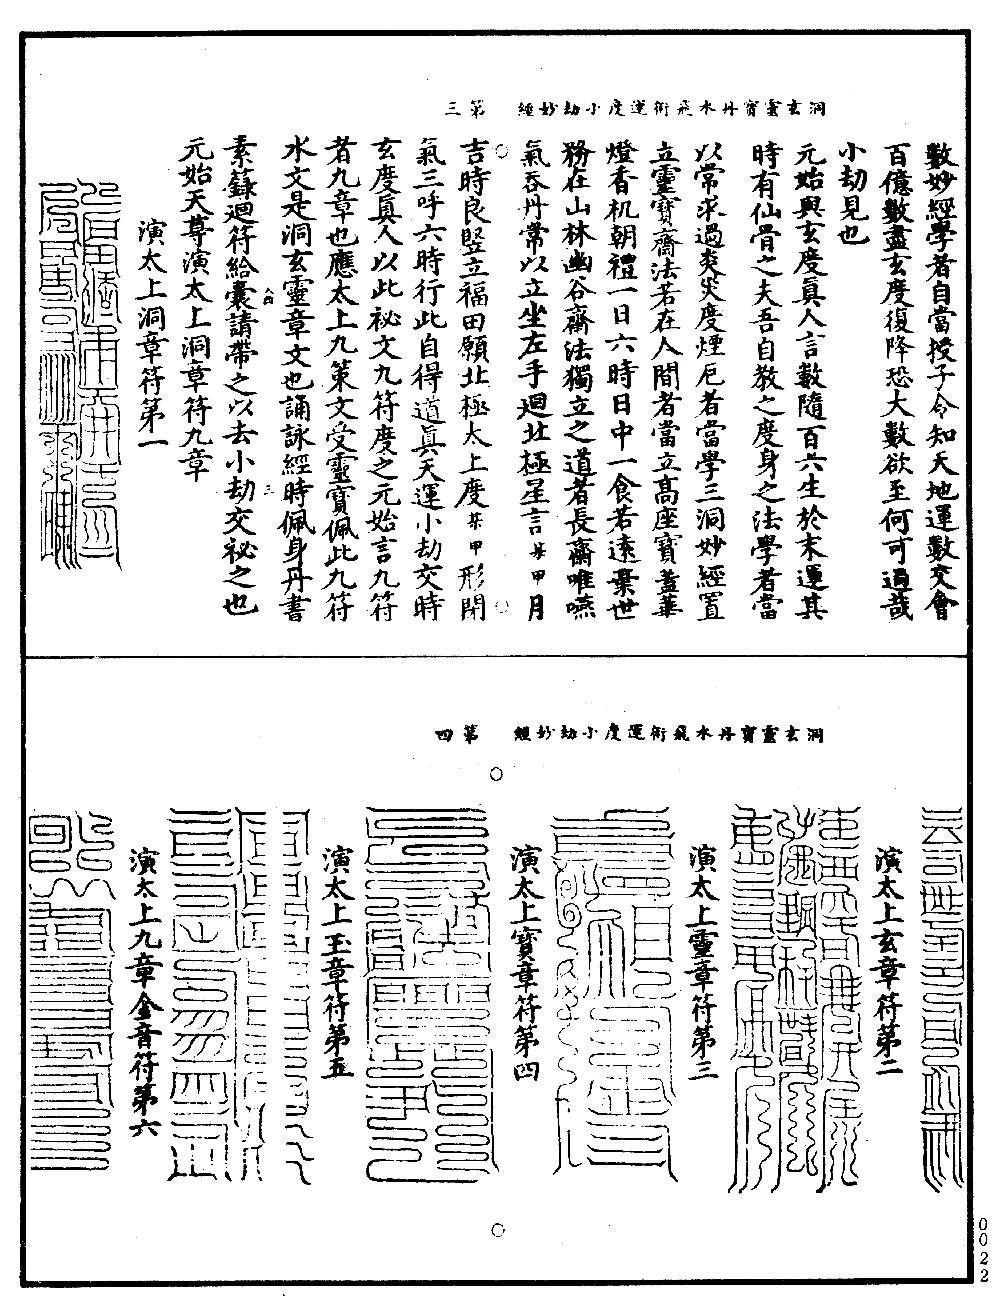 洞玄靈寶丹水飛術運度小劫妙經　第三
數妙經學者自當授子令知天地運數交會
百億數盡玄度復降恐大數欲至何可過哉
小劫見也
元始與玄度眞人言數隨百六生於末運其
時有仙骨之夫吾自敎之度身之法學者當
以常求過炎災度煙厄者當學三洞妙經置
立靈寶齋法若在人間者當立高座寶蓋華
燈香机朝禮一日六時日中一食若遠棄世
務在山林幽谷齋法獨立之道者長齋唯嚥
氣吞丹常以立坐左手迴北極星言某甲月
吉時良豎立福田願北極太上度某甲形閉
氣三呼六時行此自得道眞天運小劫交時
玄度眞人以此祕文九符度之元始言九符
者九章也應太上九策文受靈寶佩此九符
水文是洞玄靈章文也誦詠經時佩身丹書
素籙迴符給囊請帶之以去小劫交祕之也
元始天尊演太上洞章符九章
演太上洞章符第一
洞玄靈寶丹水飛術運度小劫妙經　第四
演太上玄章符第二
演太上靈章符第三
演太上寶章符第四
演太上玉章符第五
演太上九章金音符第六
0022